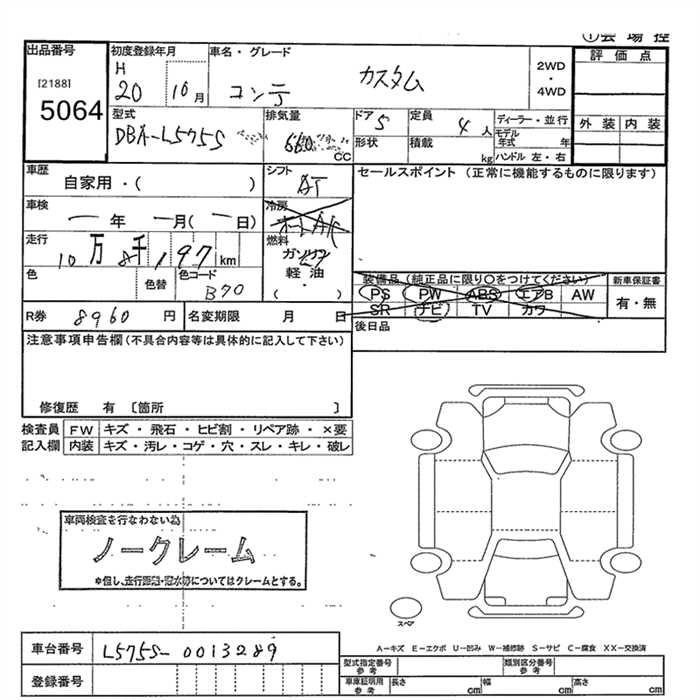 ①会場控
出品番号
[2188]
5064
初度登録年月
H
20 10月
車名・グレード
コンテ カスタム
2WD
・
4WD
評価点
外装 内装
型式
DBA-L575S
排気量
660
CC
ドア
5
形状
定員
4人
積載
kg
ディーラー・並行
モデル
年式 年
ハンドル 左・右
車歴
自家用・( )
シフト
AT
セールスポイント (正常に機能するものに限ります)
車検
ー年 ー月(ー日)
冷房
走行
10万8千197km
燃料
ガソリン
軽油
・
( )
色
色替
色コード
B70
装備品(純正品に限り〇をつけてください)
PS PW ABS エアB AW
SR ナビ TV カワ
新車保証書
有・無
R券 8960円
名変期限 月 日
後日品
注意事項申告欄(不具合内容等は具体的に記入して下さい)
修復歴 有 [箇所 ]
検査員 FW キズ・飛石・ヒビ割・リペア跡・×要
記入欄 内装 キズ・汚レ・コゲ・穴・スレ・キレ・破レ
車両検査を行なわない為
ノークレーム
*但し、走行距離・冠水等についてはクレームとする。
スペア
A-キズ E-エクボ U-凹み W-補修跡 S-サビ C-腐食 XX-交換済
車台番号 L575S-0013289
登録番号
型式指定番号
参考
類別区分番号
参考
車庫証明用
参考
長さ cm 幅 cm 高さ cm